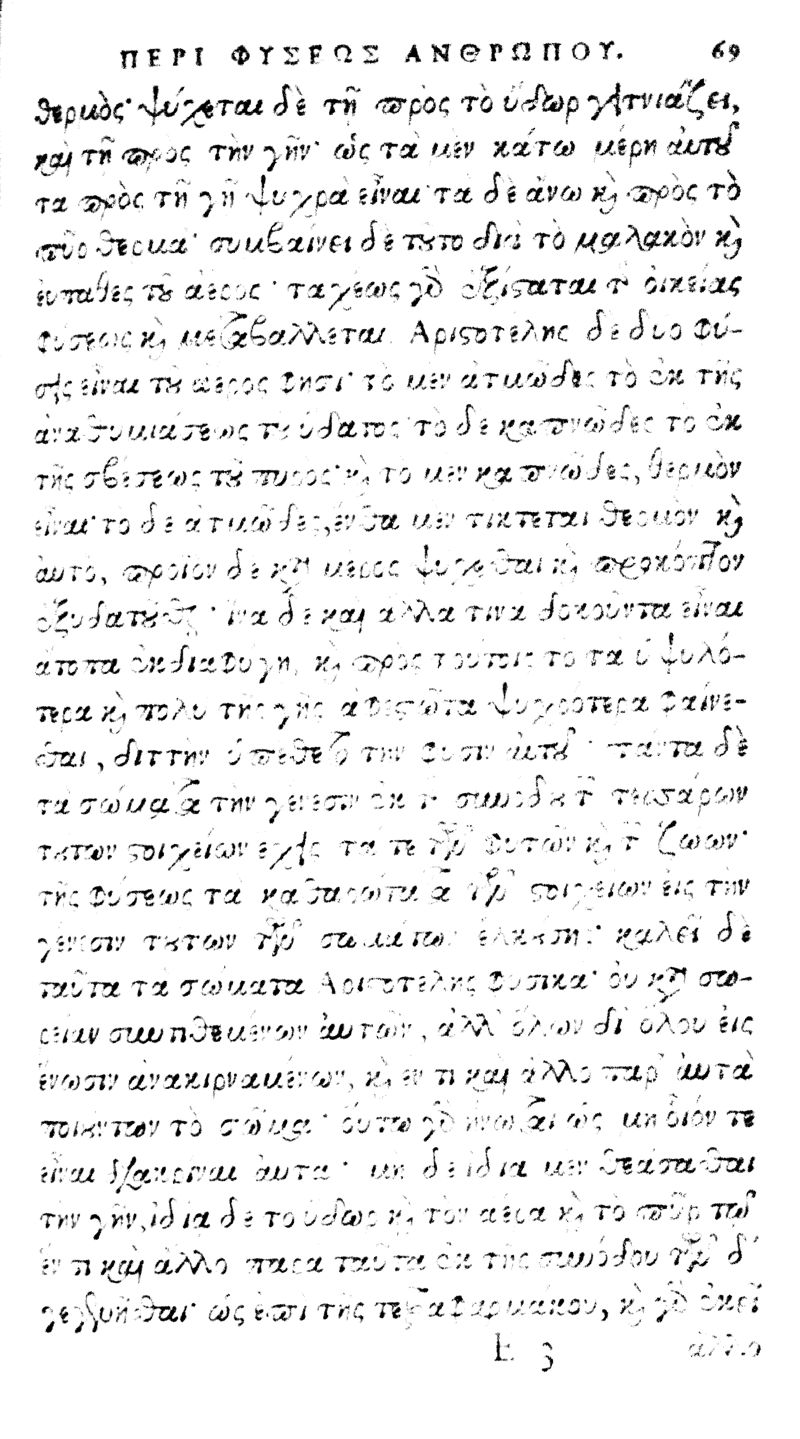 ΠΕΡΙ ΦΥΣΕΩΣ ΑΝΘΡΩΠΟΥ. 69
θερμὸς· ψύχεται δὲ τῇ πρὸς τὸ ὕδωρ γειτνιάζει,
καὶ τῇ πρὸς τὴν γῆν· ὡς τὰ μὲν κάτω μέρη ἀυτοῦ
τὰ πρὸς τῇ γῇ ψυχρὰ εἶναι· τὰ δὲ ἄνω κὶ πρὸς τὸ
πῦρ θερμά· συμβαίνει δὲ τοῦτο διὰ τὸ μαλακὸν κὶ
ἐυπαθὲς τοῦ ἀέρος· ταχέως γὸ ἐξίσταται τ οἰκείας
φύσεως κὶ μεταβάλλεται. Αριστοτέλης δὲ δύο φύ-
σεις εἶναι τοῦ ἀέρος φησι· τὸ μὲν ἀτμῶδες τὸ ἐκ τῆς
ἀναθυμιάσεως τοῦ ὕδατος· τὸ δὲ καπνῶδες τὸ ἐκ
τῆς σβέσεως τοῦ πυρος· κὶ τὸ μὲν καπνῶδες, θερμὸν
εἶναι· τὸ δὲ ἀτμῶδες, ἔνθα μὲν τίκτεται θερμὸν κὶ
ἀυτὸ, προϊὸν δὲ κτ μέρος ψύχεσθαι κὶ προκόπτον
ἐξυδατοῦσθ· ἵνα δὲ καὶ ἄλλα τινὰ δοκοῦντα εἶναι
ἄτοπα ἐκδιαφύγη, κὶ πρὸς τούτοις τὸ τὰ ὑψηλό-
τερα κὶ πολὺ τῆς γῆς ἀφεστῶτα ψυχρότερα φαίνε-
σθαι, διττὴν ὑπέθετο τὴν φύσιν ἀυτοῦ· πάντα δὲ
τὰ σώματα τὴν γένεσιν ἐκ τ συνόδου τ τεσσάρων
τούτων στοιχείων ἔχει· τά τε τῶν φυτῶν κὶ τ ζώων·
τῆς φύσεως τὰ καθαρώτατα τῶν στοιχείων εἰς τὴν
γένεσιν τούτων τῶν σωμάτων ἑλκούσης· καλεῖ δὲ
ταῦτα τὰ σώματα Αριστοτέλης φυσικά· οὐ κτ σω-
ρείαν συντιθεμένων ἀυτῶν, ἀλλ' ὅλων δι' ὅλου εἰς
ἕνωσιν ἀνακιρναμένων, κὶ ἕν τι καὶ ἄλλο παρ' ἀυτὰ
ποιούντων τὸ σῶμα· οὕτω γὸ ἥνωται ὡς μὴ οἷόν τε
εἶναι διακρῖναι ἀυτά· μὴ δὲ ἰδία μὲν θεάσασθαι
τὴν γῆν, ἰδία δὲ τὸ ὕδωρ κὶ τὸν ἀέρα κὶ τὸ πῦρ τῷ
ἕν τι καὶ ἄλλο παρὰ ταῦτα ἐκ τῆς συνόδου τῶν δ'
γεγενῆσθαι· ὡς ἐπὶ τῆς τετραφαρμάκου, κὶ γὸ ἐκεῖ
E 3 ἄλλο